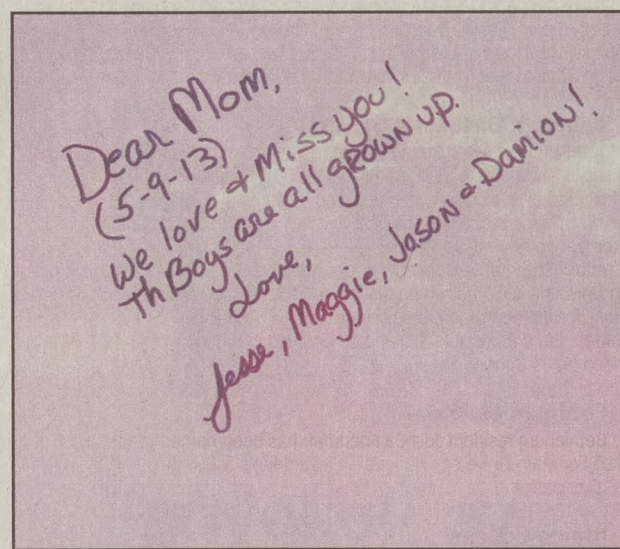 Dear Mom,
(5-9-13)
We love & Miss you!
Th Boys are all grown up.
Love,
Jesse, Maggie, Jason & Damion!